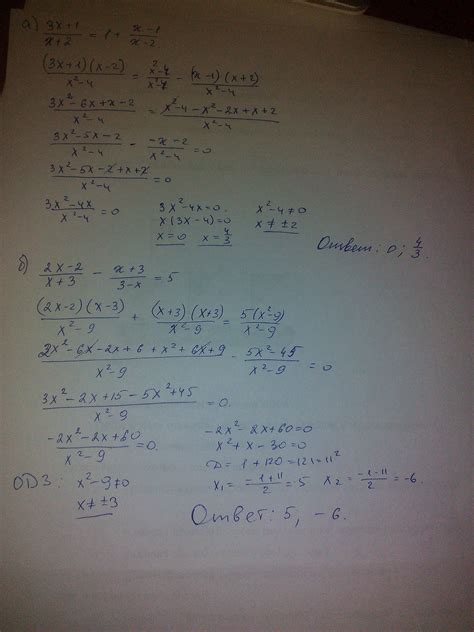 а) (3x+1)/(x+2) = 1 + (x-1)/(x-2)
(3x+1)(x-2)/(x²-4) = (x²-4)/(x²-4) - (x-1)(x+2)/(x²-4)
(3x²-6x+x-2)/(x²-4) = (x²-4-x²-2x+x+2)/(x²-4)
(3x²-5x-2)/(x²-4) - (-x-2)/(x²-4) = 0
(3x²-5x-2+x+2)/(x²-4) = 0
(3x²-4x)/(x²-4) = 0 3x²-4x=0. x²-4≠0
x(3x-4)=0 x≠±2
x=0 x=4/3
Ответ: 0; 4/3.
б) (2x-2)/(x+3) - (x+3)/(3-x) = 5
(2x-2)(x-3)/(x²-9) + (x+3)(x+3)/(x²-9) = 5(x²-9)/(x²-9)
(2x²-6x-2x+6+x²+6x+9)/(x²-9) - (5x²-45)/(x²-9) = 0
(3x²-2x+15-5x²+45)/(x²-9) = 0.
(-2x²-2x+60)/(x²-9) = 0. -2x²-2x+60=0
x²+x-30=0
ОДЗ: x²-9≠0 D=1+120=121=11²
x≠±3 x₁=(-1+11)/2=5 x₂=(-1-11)/2=-6.
Ответ: 5, -6.